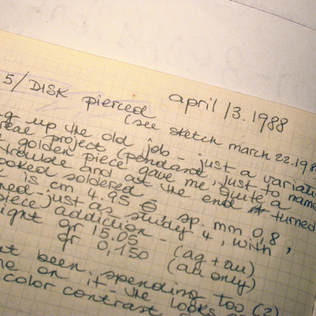 5/DISK pierced april 13.1988
(see sketch march 22.198
g up the old job - just a variati
real project (pendant just to name
golden piece gave me quite a
and at the end it turned
ooked soldered
is cm 4,95 ⌀ sp. mm 0,8,
piece just as study 4, with
ight addition -
gr 15.05 (ag + au)
gr 0,150 (au only)
t been spending too (2)
me on it - the looks
color contrast